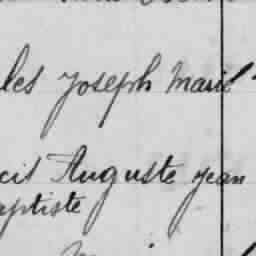 les Joseph Marie
cis Auguste Jean
aptiste